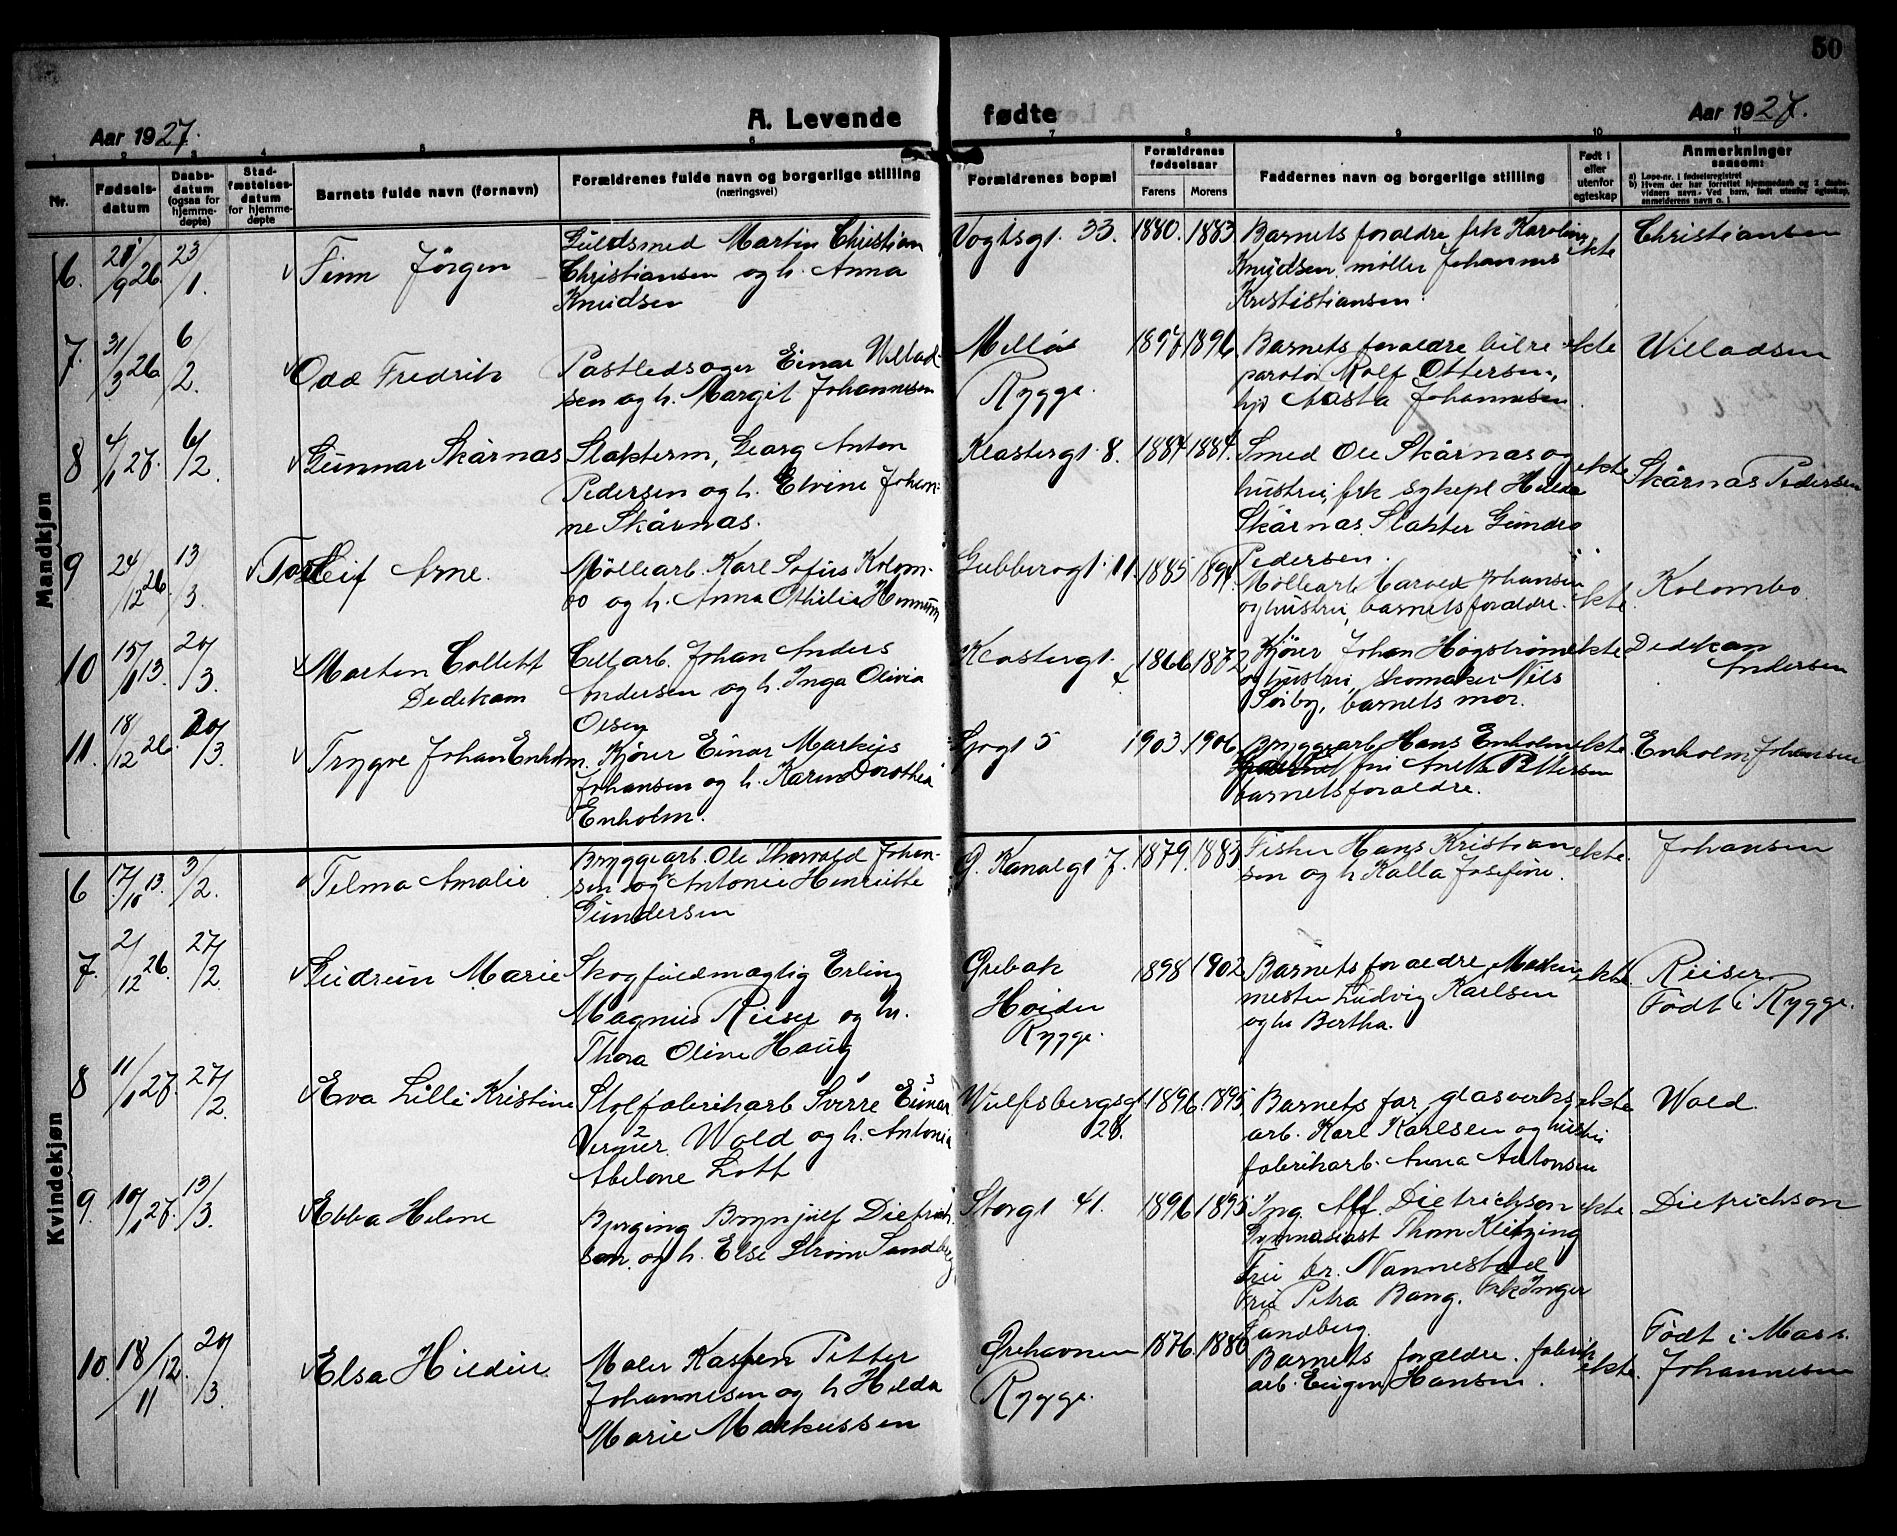 50
A. Levende fødte
Aar 1927.
Aar 1927.
1 2 3 4 5 6 7 8 9 10 11
Nr.
Fødsels-
datum
Daabs-
datum
(ogsaa for
hjemme-
døpte)
Stad-
fæstelses-
datum
for hjemme-
døpte
Barnets fulde navn (fornavn)
Forældrenes fulde navn og borgerlige stilling
(næringsvei)
Forældrenes bopæl
Forældrenes
fødselsaar
Farens Morens
Faddernes navn og borgerlige stilling
Født i
eller
utenfor
egteskap
Anmerkninger
saasom:
a) Løpe-nr. i fødselsregistret
b) Hvem der har forrettet hjemmedaab og 2 daabs-
vidners navn. - Ved barn, født utenfor egteskap,
anmelderens navn o. l
Mandkjøn
6. 23/1 Finn Jörgen
Guldsmed Martin Christian
Christiansen og h. Anna
Knudsen
Vogtsgt. 33. 1880. 1883
Barnets foraldre frk Karoline
Knudsen, møller Johannes
Krististiansen.
ekte Christiansen
7. 31/3 26 6/2. Odd Fredrik
Postledsager Einar Willad-
sen og h. Margit Johannesen
Melløs
Rygge.
1897 1896
Barnets foraldre bilre
paratør Rolf Ottersen,
hjr Aasta Johannesen.
ekte Willadsen
8 4/1 27. 6/2. Gunnar Skårnas
Slakterm, Georg Anton
Pedersen og h. Elvine Johan-
ne Skårnas.
Klostergt. 8. 1884 1884.
Smed Ole Skårnas og
hustru, frk sykepl Hilda
Skårnas Slakter Gundro
Pedersen.
ekte Skårnas Pedersen
9 24/12 26 13/3. Torleif Arne.
Møllearb. Karl Sofus Kolom-
bo og h. Anna Othilie Hennum
Gubberogt. 11. 1885 1894.
Møllearb Harold Johansen
og hustru, barnets foraldre.
ekte. Kolombo.
10 15/1 13. 20/3. Morten Collett
Dedekam
Cellarb. Johan Anders
Andersen og h. Inga Olivia
Olsen
Klostergt. 1866 1872
Kjører Johan Høgstrøm
og hustru, skomaker Nils
Sørby, barnets mor.
ekte Dedekam
Andersen
11. 18/12 26. 20/3 Trygve Johan Enholm.
Kjører Einar Markus
Johansen og h. Karen Dorothea
Enholm.
5 1903. 1906
Bryggearb. Hans Enholm
fru Anette Pettersen
barnets foraldre.
ekte Enholm Johansen
Kvindekjøn
6 17/10 13. 3/2. Telma Amalie
Bryggearb. Ole Thorvald Johan-
sen og Antonie Henriette
Gundersen
G. Kanalgt 7. 1879. 1883
Fisker Hans Kristian
sen og h Kalla Josefine.
ekte. Johansen
7. 2/12 26. 27/2. Gudrun Marie
Skogfuldmægtig Erling
Magnus Rieser og h.
Thora Oline Haug
Grebak
Høiden
Rygge.
1898 1902
Barnets foraldre, Maskin
mester Ludvig Karlsen
og h Bertha.
ekte. Rieser.
Født i Rygge.
8 11/1 27. 27/2. Eva Lilli Kristine
Stolfabrikarb Sverre Einar
Verner Wold og h. Antonie
Abelone Lott
Wulfsbergsgt
28.
1896. 1895
Barnets far, glasverks
arb. Karl Karlsen og hustru
fabrikarb. Anna Antonsen
ekte Wold.
9. 10/1 27. 13/3. Ebba Helene
Bging Brynjulf Dietrich
son og h. Else Strøm Sandberg
Storgt 41. 1896 1895
Ing. Alf. Dietrichson
Gymnasiast Thom Klitzing
Fru br. Nannestad
Fru Petra Bang. Frk Inger
Sandberg.
ekte. Dietrichson
10. 18/11 20/3. Elsa Hildur
Maler Kasper Petter
Johannesen og h Hilda
Marie Markussen
Ørehavnen
Rygge.
1876. 1886
Barnets foraldre. fabrik
arb. Eugen Hansen.
ekte. Født i Moss.
Johannesen